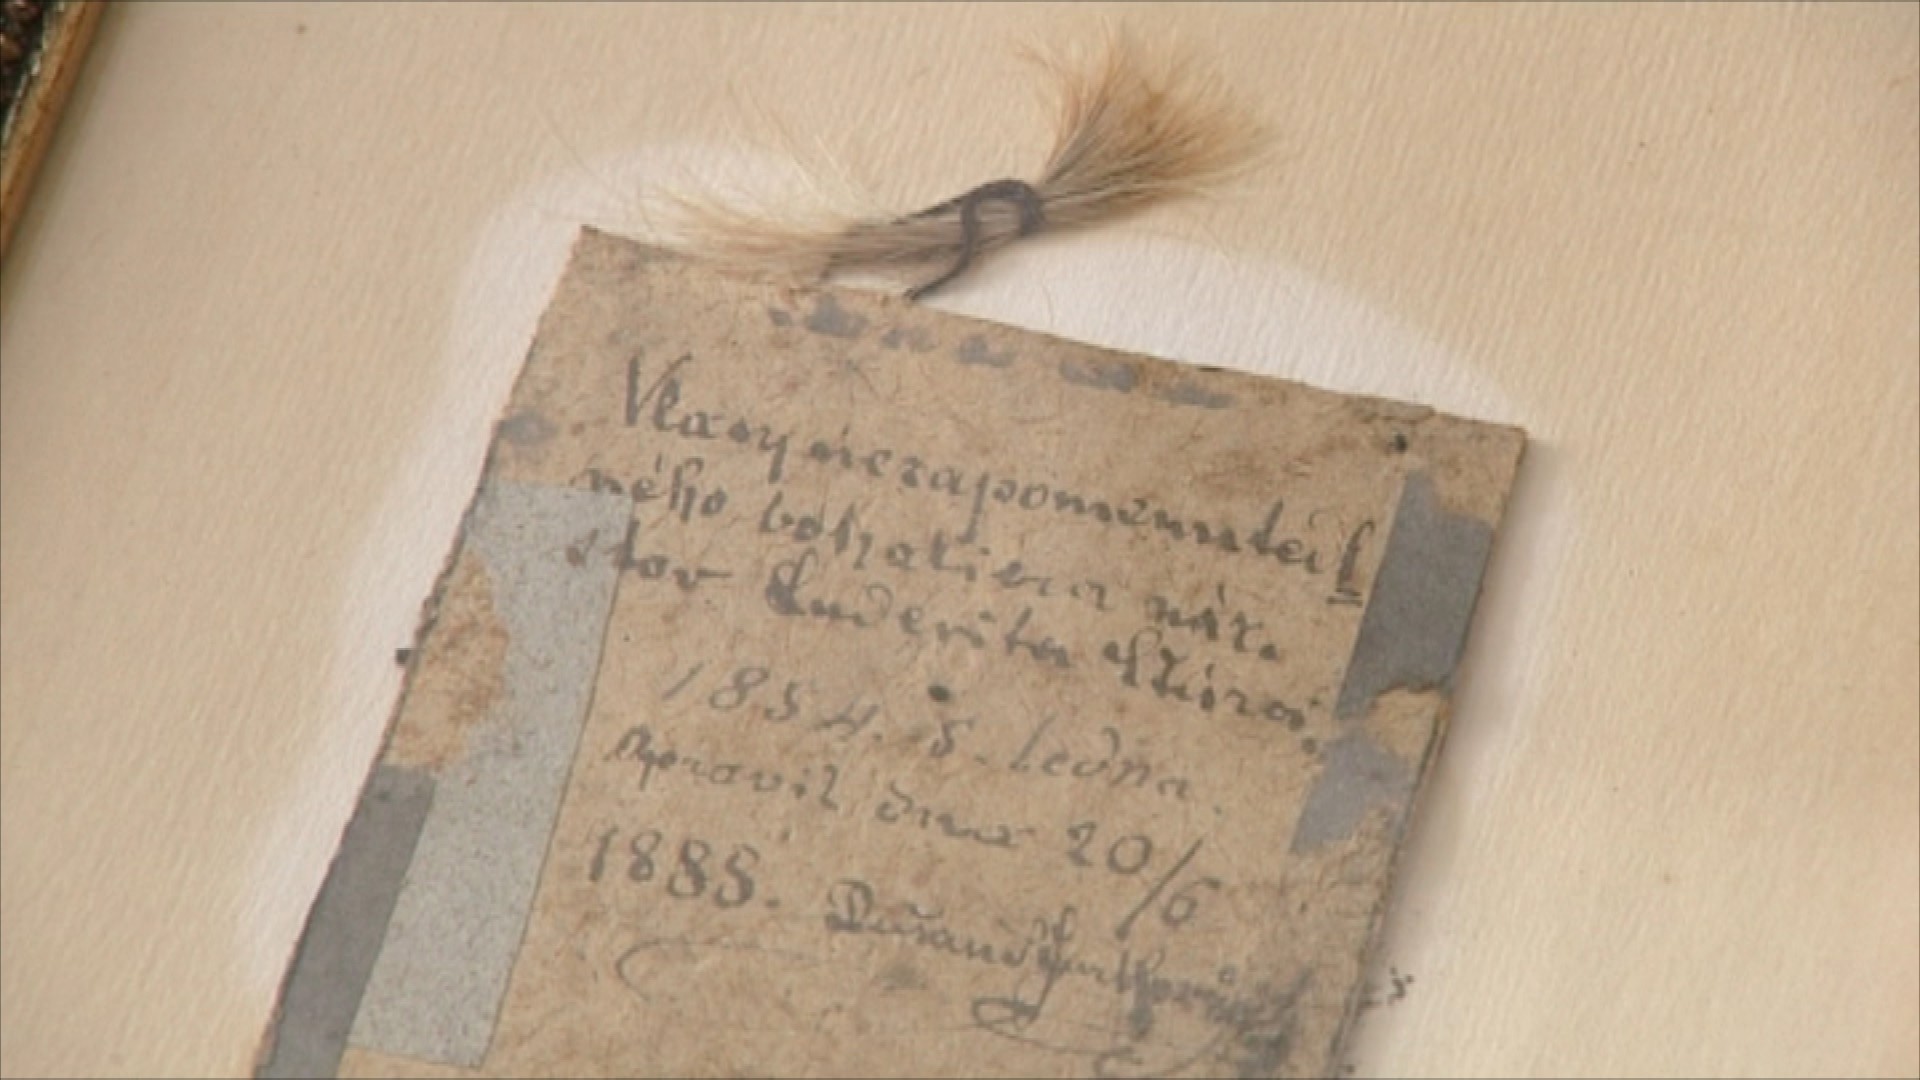 Vlasy nezapomenutel
ného bohatiera náro
dov Ludevíta Štúra,
1854. 8. ledna.
opravil dna 20/6
1885.